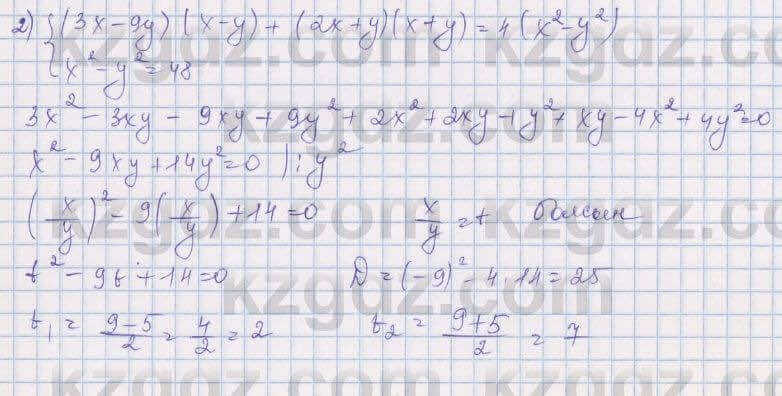 2) { (3x-9y)(x-y)+(2x+y)(x+y)=4(x²-y²)
x²-y²=48
3x²-3xy-9xy+9y²+2x²+2xy+y²+xy-4x²+4y²=0
x²-9xy+14y²=0 ):y²
(x/y)²-9(x/y)+14=0 x/y=t болсын
t²-9t+14=0 D=(-9)²-4·14=25
t₁=(9-5)/2=4/2=2 t₂=(9+5)/2=7
kzgdz.com